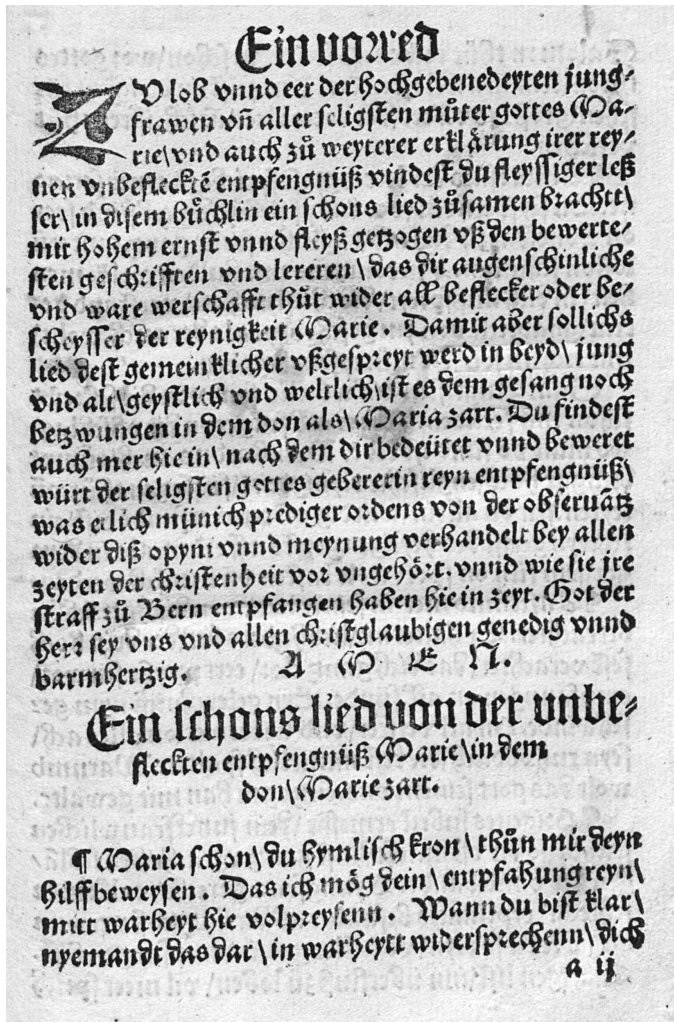 Ein vorred
ZU lob vnnd eer der hochgebenedeyten jung-
frawen vñ aller seligsten müter gottes Ma-
rie\vnd auch zů weyterer erklärung irer rey-
nen vnbefleckte͂ entpfengnüß vindest du fleyssiger leß
ser\ in disem büchlin ein schons lied zůsamen brachtt\
mit hohem ernst vnnd fleyß getzogen vß den bewerte-
sten geschrifften vnd lereren \ das dir augenschinliche
vnd ware werschafft thůt wider all beflecker oder be-
scheysser der reynigkeit Marie. Damit aber sollichs
lied dest gemeinklicher vßgespreyt werd in beyd\ jung
vnd alt\geystlich vnd weltlich\ist es dem gesang noch
betzwungen in dem don als\ Maria zart. Du findest
auch mer hie in\ nach dem dir bedeütet vnnd beweret
würt der seligsten gottes gebererin reyn entpfengnüß\
was etlich münich prediger ordens von der obseruātz
wider diß opyni vnnd meynung verhandelt bey allen
zeyten der christenheit vor vngehört. vnnd wie sie jre
straff zů Bern entpfangen haben hie in zeyt. Got der
herr sey vns vnd allen christglaubigen genedig vnnd
barmhertzig. A M E N.
Ein schons lied von der vnbe-
fleckten entpfengnüß Marie\in dem
don\Marie zart.
¶ Maria schon\ du hymlisch kron \ thůn mir deyn
hilff beweysen. Das ich mög dein\ entpfahung reyn\
mitt warheyt hie volpreysenn. Wann du bist klar\
nyemandt das dar \ in warheytt widersprechenn\ dich
a ij